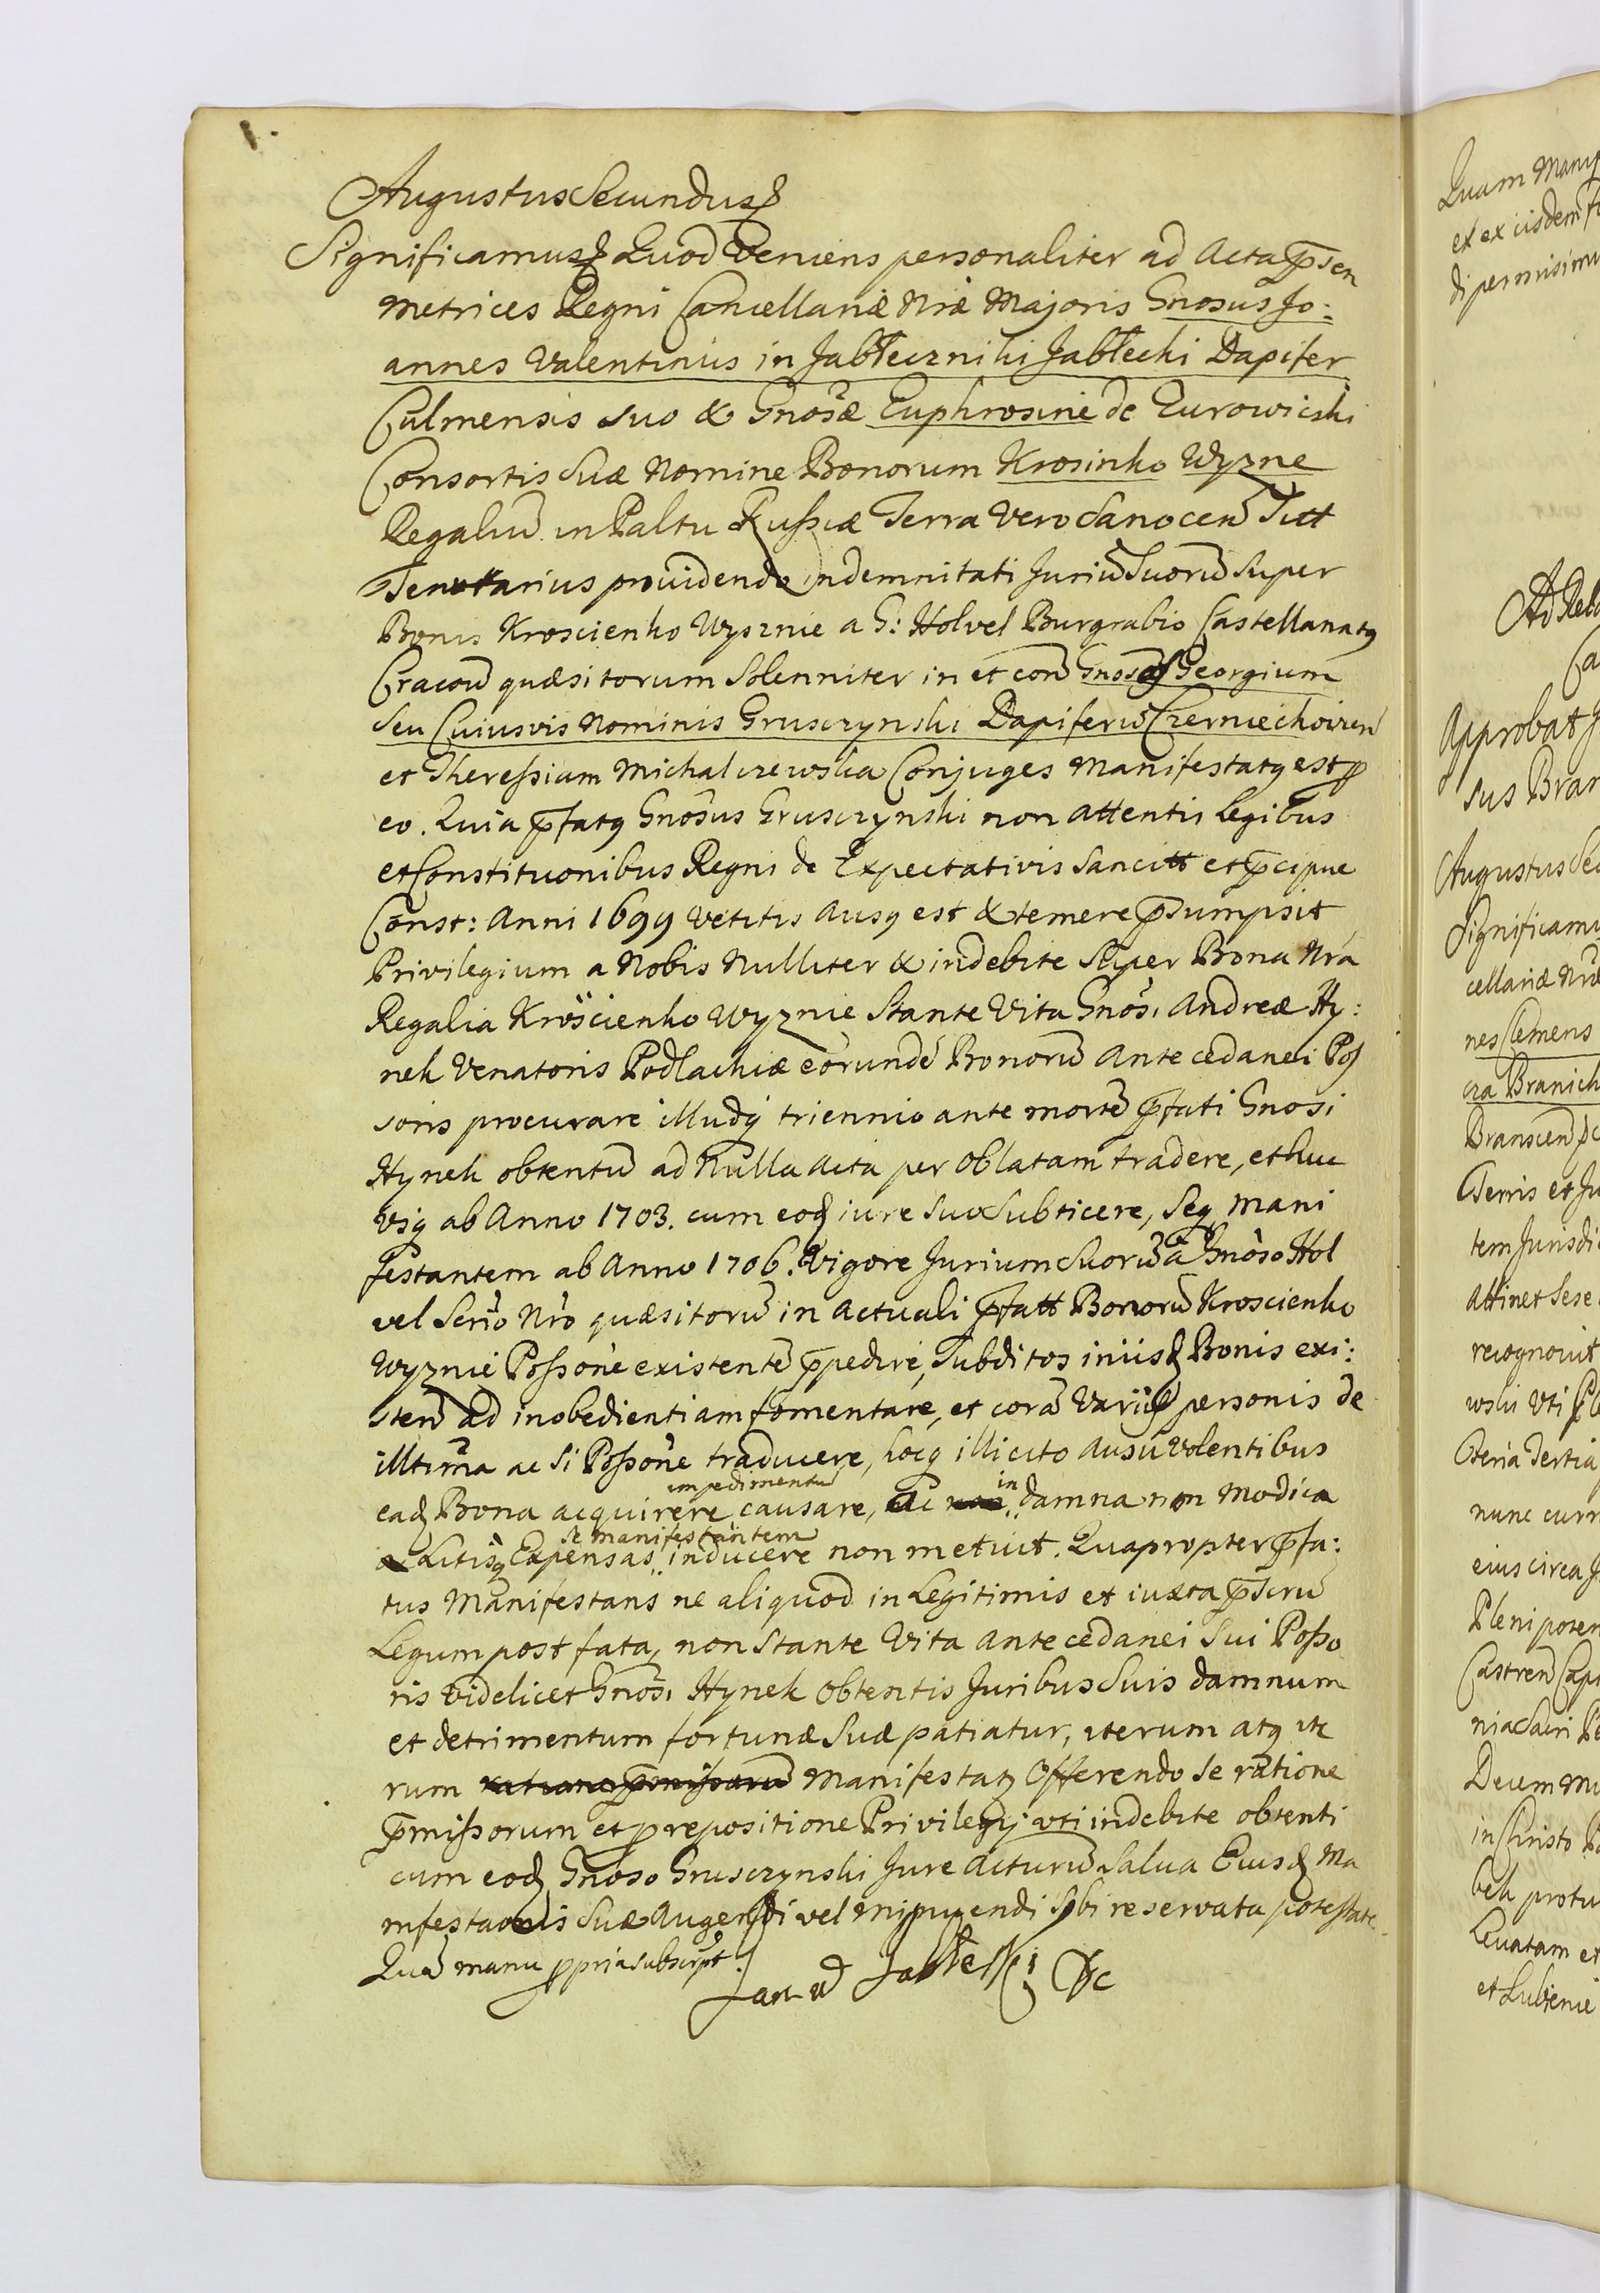 1.
Augustus Secundus
Significamus Quod Veniens personaliter ad Acta p̄sen
Metrices Regni Cancellariæ Nr̄æ Majoris Gnosus Jo:
annes Valentinus in Jabłeczniki Jabłecki Dapifer
Culmensis suo & Gnosæ Euphrosinæ de Turowicki
Consortis Suæ Nomine Bonorum Krosinko Wyzne
Regaliū in Paltu Russiæ Terra Vero Sanocen̄ Titt
Tenutarius prouidendo indemnitati Juriū Suorū Super
Bonis Kroscienko Wysznie a G: Holvel Burgrabio Castellanatq
Cracou quæsitorum Solenniter in et con̄ Gnosos Georgium
seu Cuiusvis Nominis Grusczynski Dapiferū Czerniechoviren
et Theressiam Michalczewska Conjuges Manifestatq est p
eo. Quia p̄fatq Gnosus Grusczynski non attentis Legibus
et Constituonibus Regni de Expectativis Sancitt et p̄cipue
Const: Anni 1699 Vetitis Ausq est & temere p̄sumpsit
Privilegium a Nobis Nulliter & indebite Super Bona Nrā
Regalia Kroscienko Wyznie Stante Vita Gnosi Andreæ Hy:
nek Venatoris Podlachiæ eorundē Bonorū Antecedanei Pos
soris procurare illudq triennio ante mortē p̄fati Gnosi
Hynek obtentū ad Nulla Acta per Oblatam tradere, et huc
Vsq ab Anno 1703. cum eod iure suo Subticere, Seq Mani
festantem ab Anno 1706. Vigore Jurium Suorū a Gnoso Hol
vel Serio Nro quæsitorū in actuali p̄fatt Bonorū Kroscienko
Wyznie Possone existentē p̄pedire, Subditos in iisd Bonis exi:
sten̄ ad inobedientiam fomentare, et corā Variis personis de
illtima ac si Possone traducere, hocq illicito Ausu Volentibus
impedimentū in
ead Bona acquirere causare, Ac damna non Modica
se manifestantem
Litisq Expensas inducere non metuit. Quapropter p̄fa:
tus Manifestans ne aliquod in Legitimis et iuxta p̄scrū
Legum post fata, non Stante Vita Antecedanei Sui Posso
ris Videlicet Gnosi Hynek Obtentis Juribus Suis damnum
et detrimentum fortunæ Suæ patiatur, iterum atq ite
rum ratione p̄missorū Manifestatq Offerendo se ratione
p̄missorum et p repositione Privilegij vti indebite obtenti
cum eod Gnoso Grusczynski Jure Acturū Salua Eiusd Ma
nifestaonis Suæ Augendi vel minuendi Sibi reservata potestate.
Quā manu ppria subscrpt.
Jan W Jabłecki
Quam Manip
et ex iisdem
di permisimu
Ad Rela
Ca
Approbat
sus Bran
Augustus Sec
Significamu
cellariæ Nræ
nes Clemens
cza Branick
Branscen
Terris et Ju
tem Jurisdi
Attinet Sese
recognouit
wski Vti
Feria Tertia
nunc curr
eius circa J
Plenipoten
Castren Cap
nia Sacri
Decem Mi
in Christo
bek protu
Leuatam et
et Lubienie